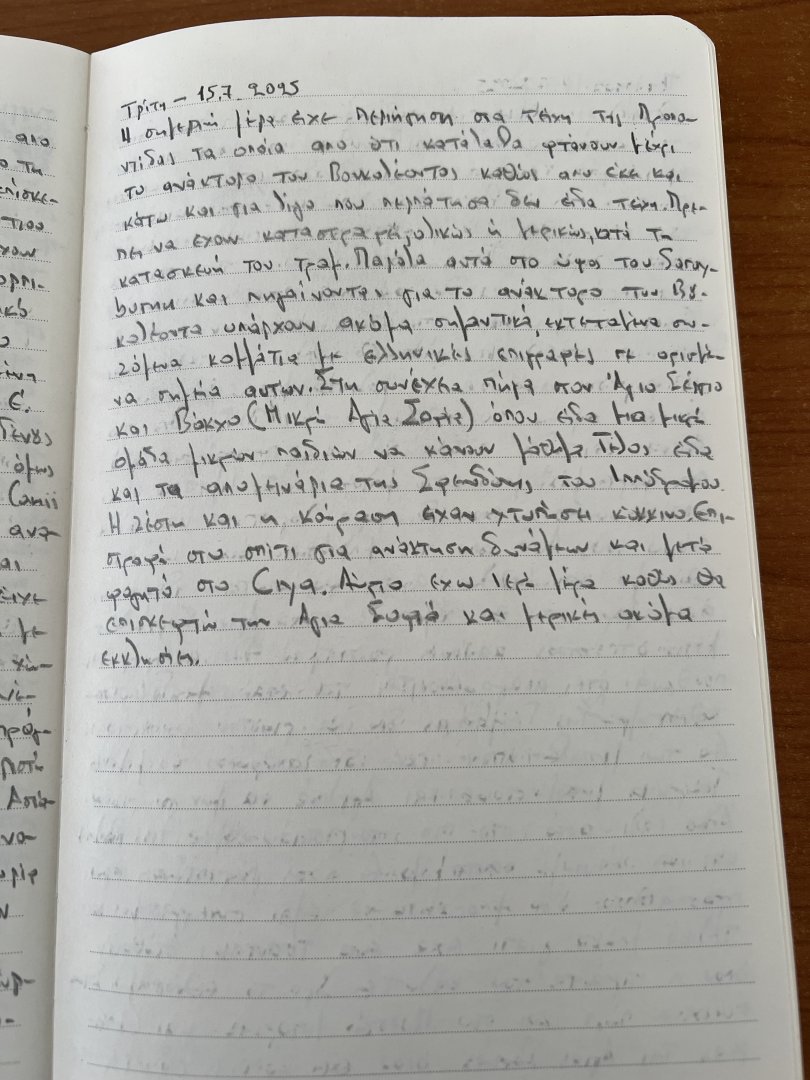 Τρίτη – 15.7.2025
Η σημερινή μέρα είχε περιήγηση στα τείχη της Προπο-
ντίδας τα οποία απο ότι κατάλαβα φτάνουν μέχρι
το ανάκτορο του Βουκολέοντος καθώς απο εκεί και
κάτω και για λίγο που περπάτησα δεν είδα τείχη. Πρέ-
πει να έχουν καταστραφεί, ολικώς ή μερικώς, κατά τη
κατασκευή του τραμ. Παρόλα αυτά στο ύψος του Saray-
burnu και πηγαίνοντας για το ανάκτορο του Βου-
κολέοντα υπάρχουν ακόμα σημαντικά, εκτεταμένα σω-
ζόμενα κομμάτια με ελληνικές επιγραφές σε ορισμέ-
να σημεία αυτών. Στη συνέχεια πήγα στον Άγιο Σέργιο
και Βάκχο (Μικρή Αγία Σοφία) όπου είδα μια μικρή
ομάδα μικρών παιδιών να κάνουν μάθημα. Τέλος είδα
και τα απομεινάρια της Σφενδόνης του Ιπποδρόμου.
Η ζέστη και η κούραση είχαν χτυπήσει κόκκινο. Επι-
στροφή στο σπίτι για ανάκτηση δυνάμεων και μετά
φαγητό στο Ciya. Αύριο έχω ιερή μέρα καθώς θα
επισκεφτώ την Αγία Σοφία και μερικές ακόμα
εκκλησίες.
απο
Cami
ανα-
με
να